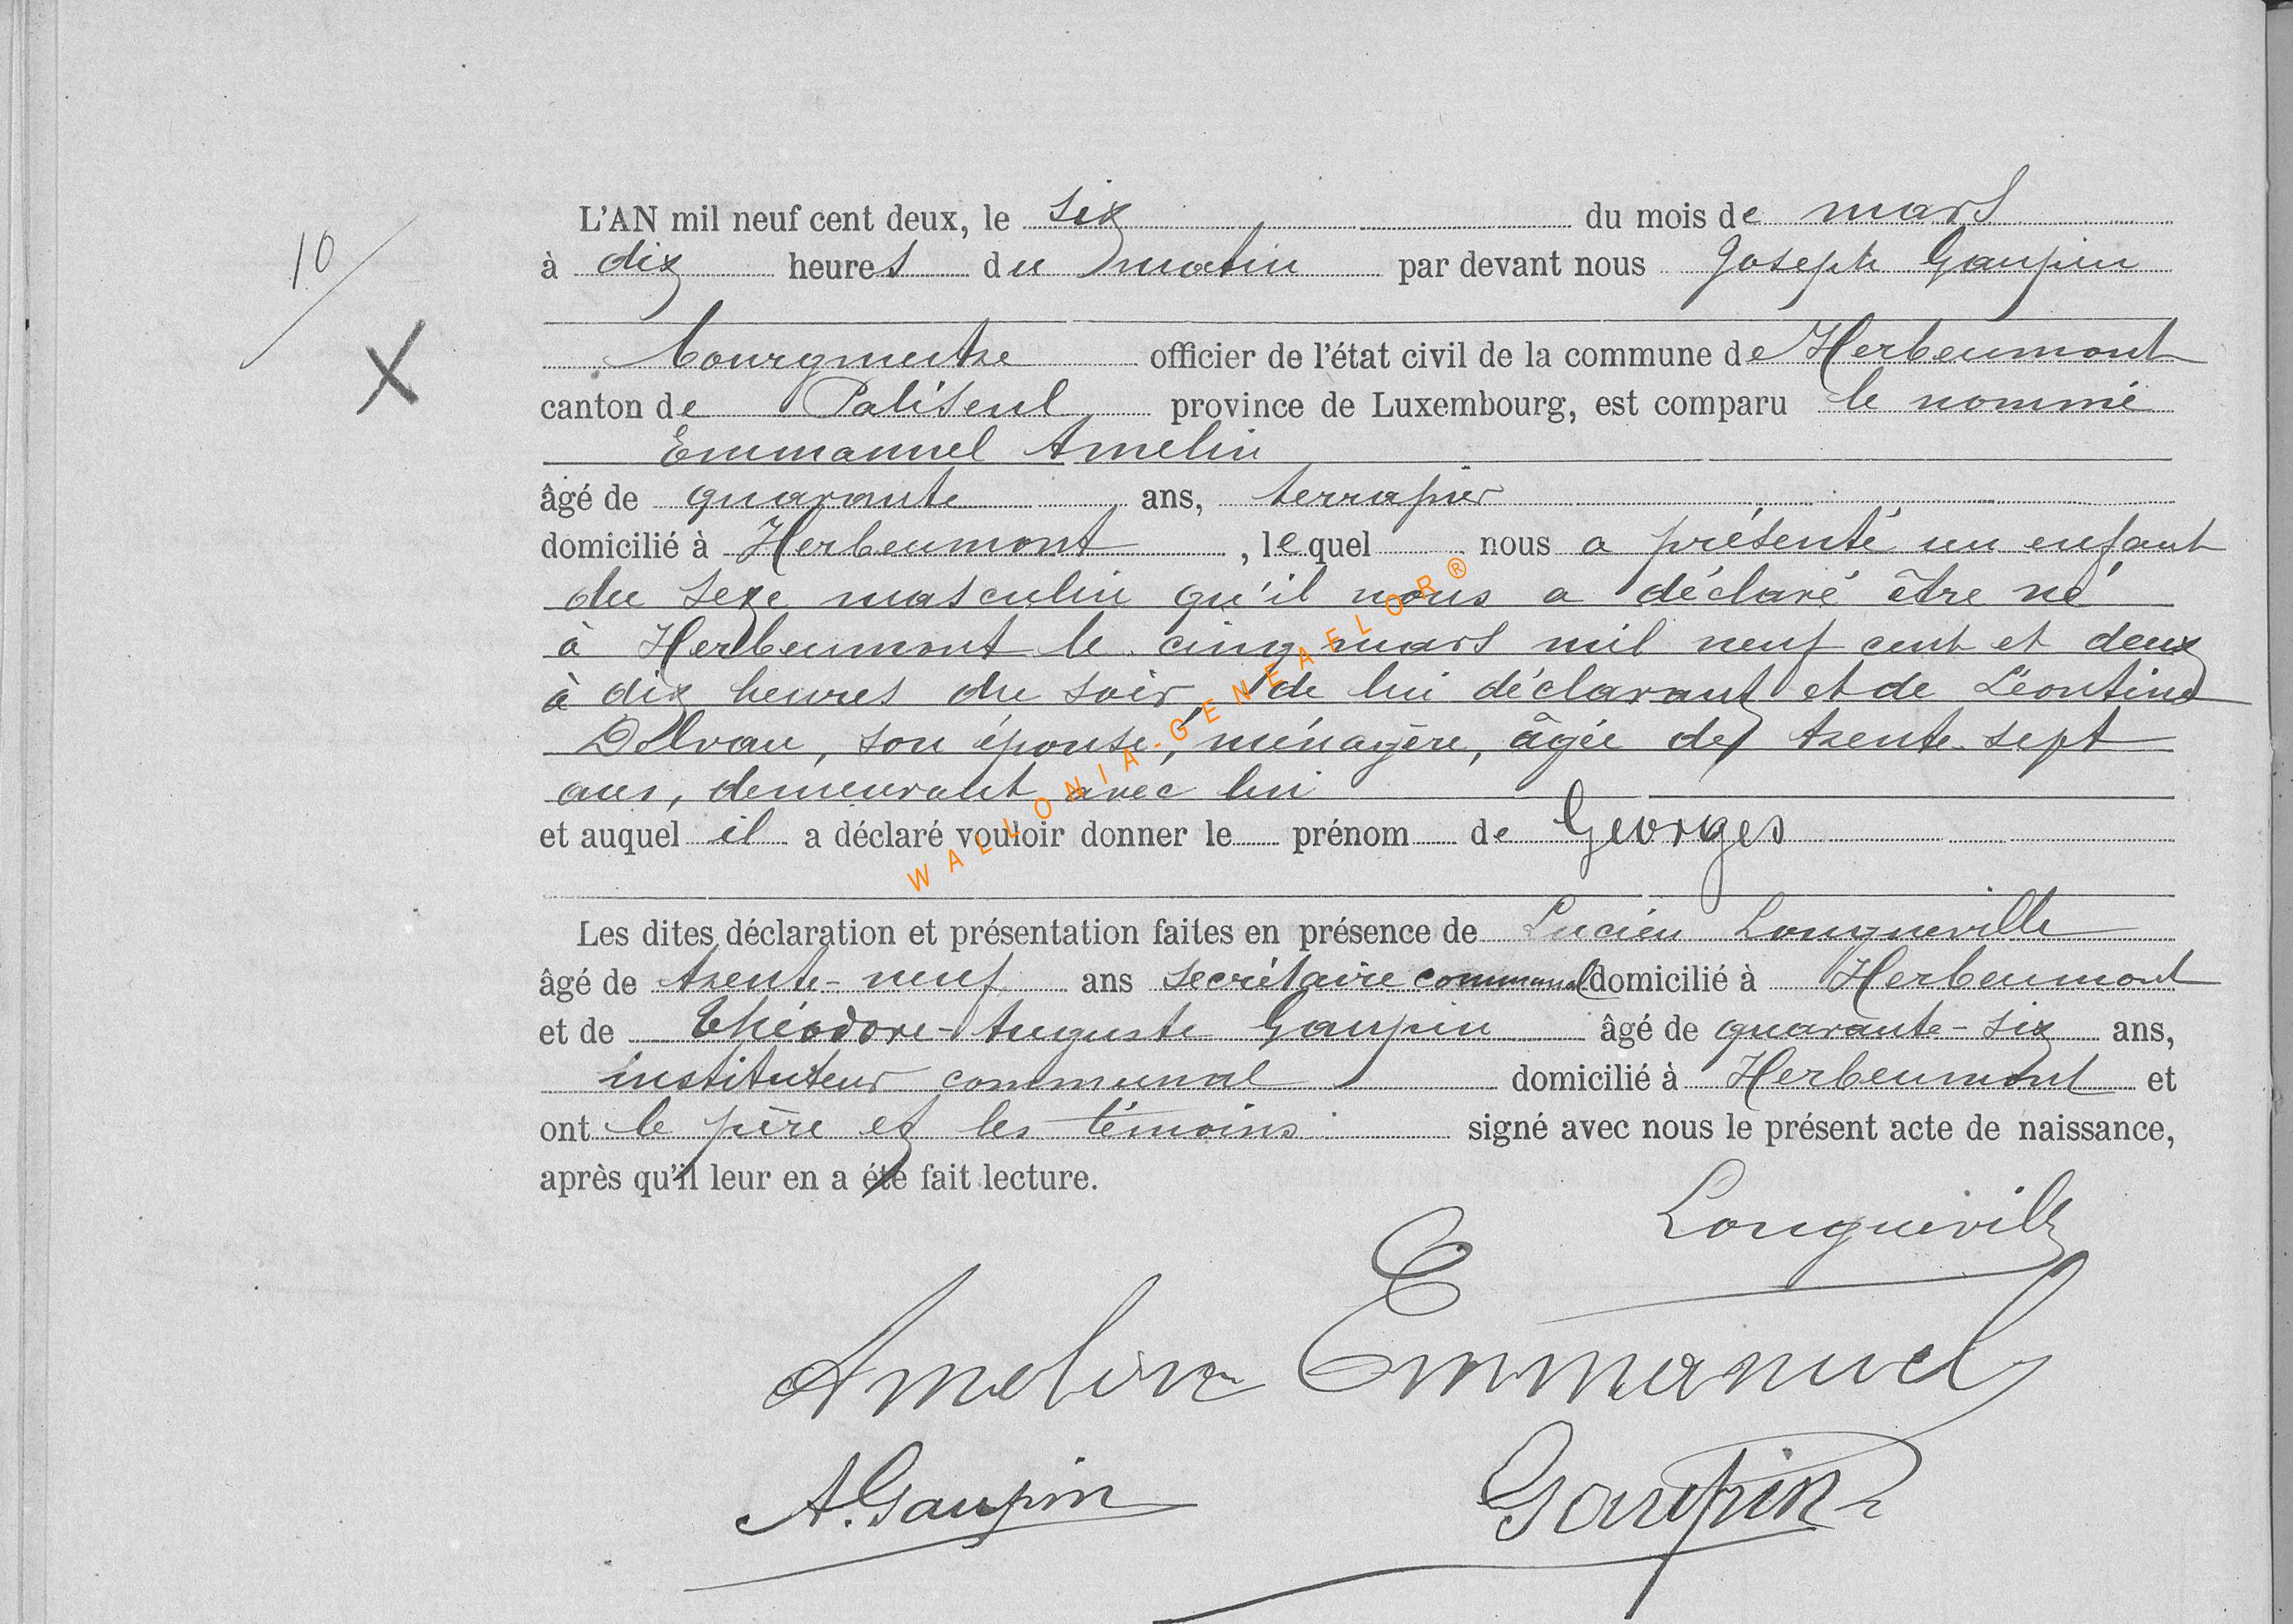 10
X
L'AN mil neuf cent deux, le six du mois de mars
à dix heures du matin par devant nous Joseph Gaupin
bourgmestre officier de l'état civil de la commune de Herbeumont
canton de Paliseul province de Luxembourg, est comparu le nommé
Emmanuel Amelin
âgé de quarante ans,
domicilié à Herbeumont, lequel nous a présenté un enfant
du sexe masculin qu'il nous a déclaré être né
à Herbeumont le cinq mars mil neuf cent et deux
à dix heures du soir, de lui déclarant et de Léontine
Delvau, son épouse, ménagère, âgée de trente-sept
ans, demeurant avec lui
et auquel il a déclaré vouloir donner le prénom de Georges
Les dites déclaration et présentation faites en présence de Lucien Longueville
âgé de trente-neuf ans secrétaire communal domicilié à Herbeumont
et de Théodore-Auguste Gaupin âgé de quarante-six ans,
instituteur communal domicilié à Herbeumont et
ont le père et les témoins signé avec nous le présent acte de naissance,
après qu'il leur en a été fait lecture.
Longueville
Amelin Emmanuel
A. Gaupin Gaupin
WALLONIA-GENEAELOR®